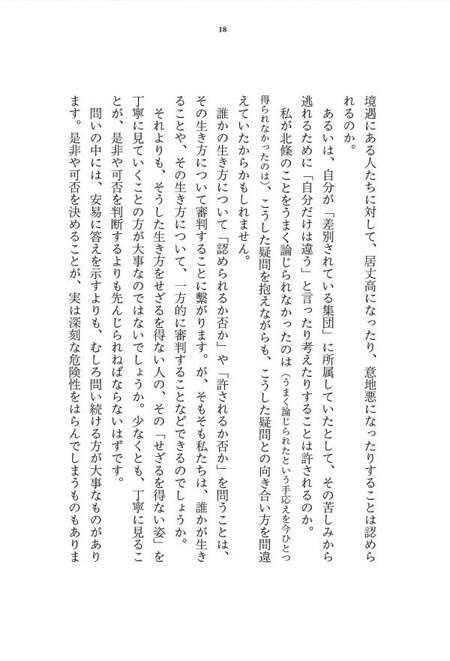 18
境遇にある人たちに対して、居丈高になったり、意地悪になったりすることは認めら
れるのか。
あるいは、自分が「差別されている集団」に所属していたとして、その苦しみから
逃れるために「自分だけは違う」と言ったり考えたりすることは許されるのか。
私が北條のことをうまく論じられなかったのは（うまく論じられたという手応えを今ひとつ
得られなかったのは）、こうした疑問を抱えながらも、こうした疑問との向き合い方を間違
えていたからかもしれません。
誰かの生き方について「認められるか否か」や「許されるか否か」を問うことは、
その生き方について審判することに繋がります。が、そもそも私たちは、誰かが生き
ることや、その生き方について、一方的に審判することなどできるのでしょうか。
それよりも、そうした生き方をせざるを得ない人の、その「せざるを得ない姿」を
丁寧に見ていくことの方が大事なのではないでしょうか。少なくとも、丁寧に見るこ
とが、是非や可否を判断するよりも先んじられねばならないはずです。
問いの中には、安易に答えを示すよりも、むしろ問い続ける方が大事なものがあり
ます。是非や可否を決めることが、実は深刻な危険性をはらんでしまうものもありま